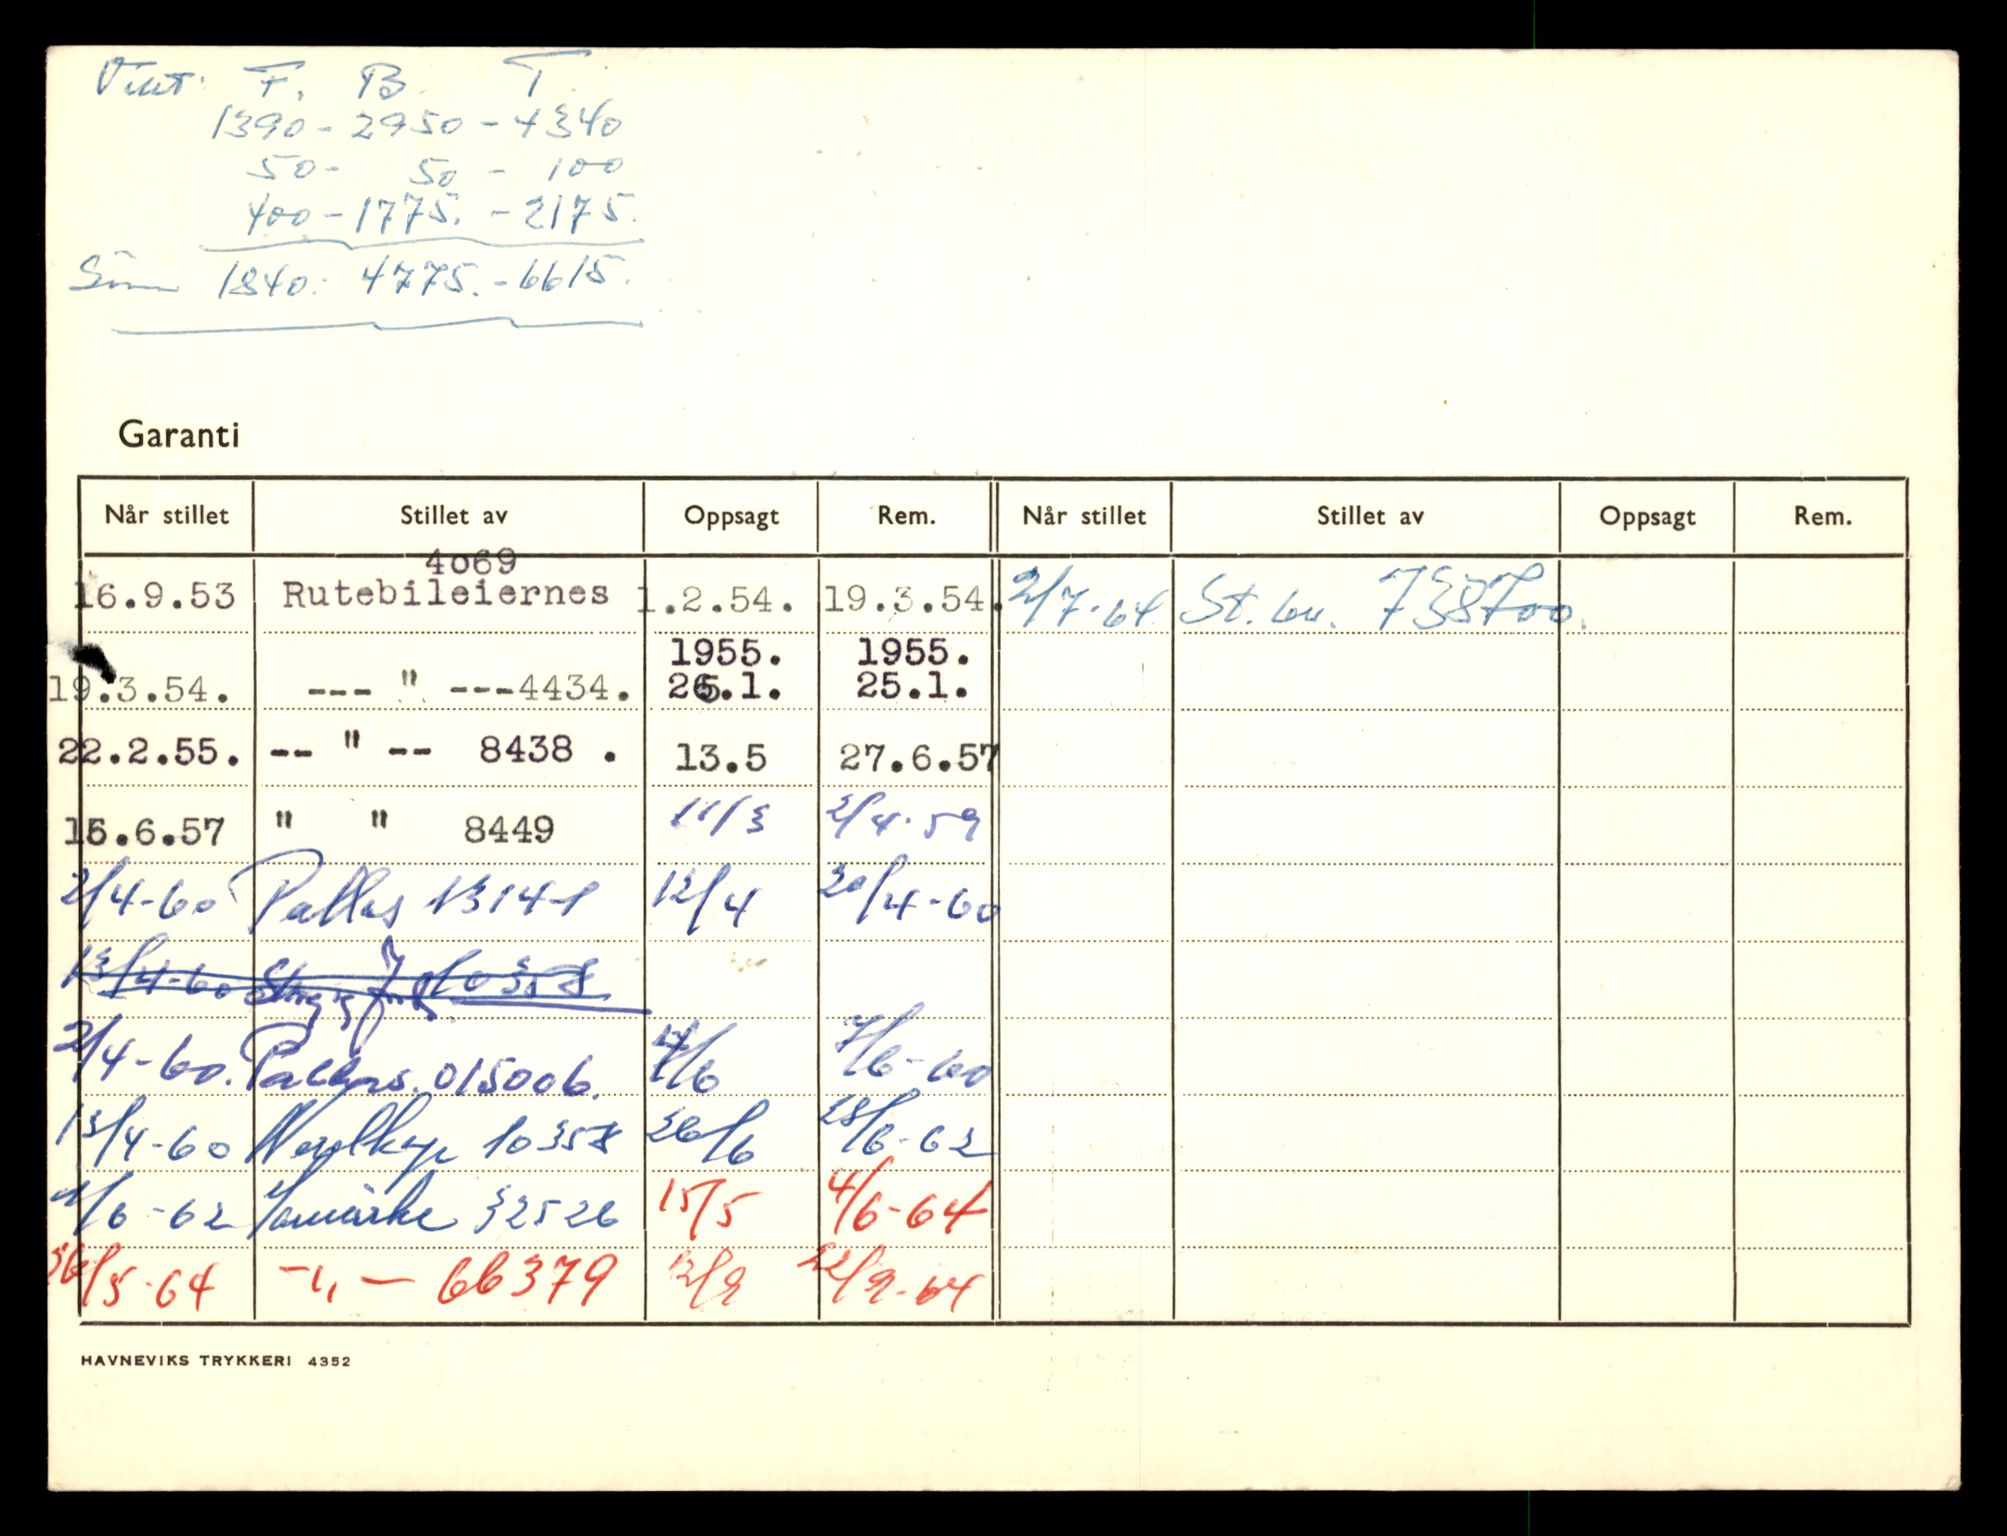 Vekt: F. B. T.
1390 - 2950 - 4340
50 - 50 - 100
400 - 1775. - 2175.
Sum 1840. 4775. - 6615.
Garanti
Når stillet Stillet av Oppsagt Rem. Når stillet Stillet av Oppsagt Rem.
4069
16.9.53 Rutebileiernes 1.2.54. 19.3.54. 2/7-64 St. br. 738700.
1955. 1955.
19.3.54. --- " ---4434. 25.1. 25.1.
22.2.55. -- " -- 8438 . 13.5 27.6.57
15.6.57 " " 8449 11/3 2/4-59
2/4-60 Pallas 13141 12/4 20/4-60
13/4-60 10358
2/4-60. 015006. /6 7/6-60
13/4-60 10358 26/6 28/6-62
/6-62 32526 15/5 4/6-64
/5-64 -"- 66379 12/9 22/9-64
HAVNEVIKS TRYKKERI 4352